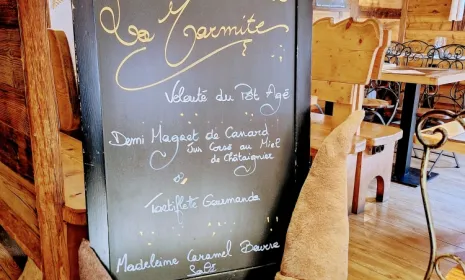 La Marmite
Velouté du Pôt Agé
Demi Magret de Canard
Jus Corsé au Miel
de Châtaignier
&
Tartiflete Gourmande
Madeleine Caramel Beurre
Salé